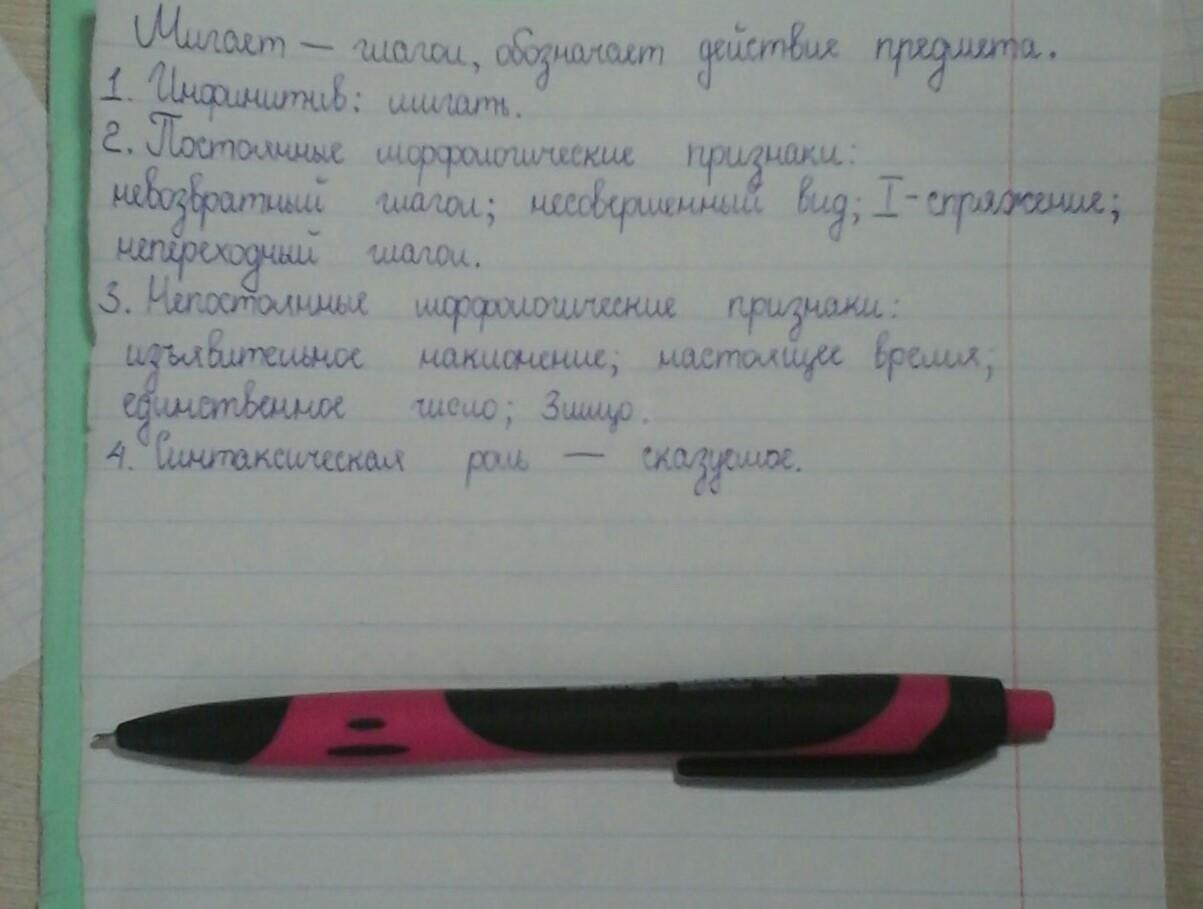 Мигает — глагол, обозначает действие предмета.
1. Инфинитив: мигать.
2. Постоянные морфологические признаки:
невозвратный глагол; несовершенный вид; I-спряжение;
непереходный глагол.
3. Непостоянные морфологические признаки:
изъявительное наклонение; настоящее время;
единственное число; 3лицо.
4. Синтаксическая роль — сказуемое.